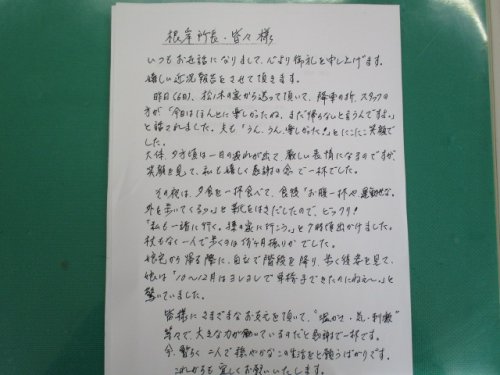 根岸所長・皆々様
いつもお世話になりまして、心より御礼を申し上げます。
嬉しい近況報告をさせて頂きます。
昨日(6日)、松ノ木の家から送って頂いて、降車の折、スタッフの
方が「今日はほんとに楽しかったね。まだ帰らないと言うんですよ。」
と話されました。夫も「うん、うん、楽しかった!」とにこにこ笑顔で
した。
大体、夕方頃は一日の疲れが出て、厳しい表情になるのですが、
笑顔を見て、私も嬉しく感謝の念で一杯でした。
その夜は、夕食を一杯食べて、食後「お腹一杯や、運動せな。
外を歩いてくるワ。」と靴をはきだしたので、ビックリ!
「私も一緒に行く。様の家に行こう。」と7時頃出かけました。
杖もなく一人で歩くのは何ヶ月振りかでした。
娘宅から帰る際に、自立で階段を降り、歩く後姿を見て、
娘は「10〜12月はヨレヨレで車椅子できたのにねえ〜。」と
驚いていました。
皆様にさまざまなお支えを頂いて、“温かさ・気・刺激”
等々で、大きな力が働いているのだと感謝で一杯です。
今暫らく二人で穏やかなこの生活をと願うばかりです。
これからも宜しくお願いいたします。